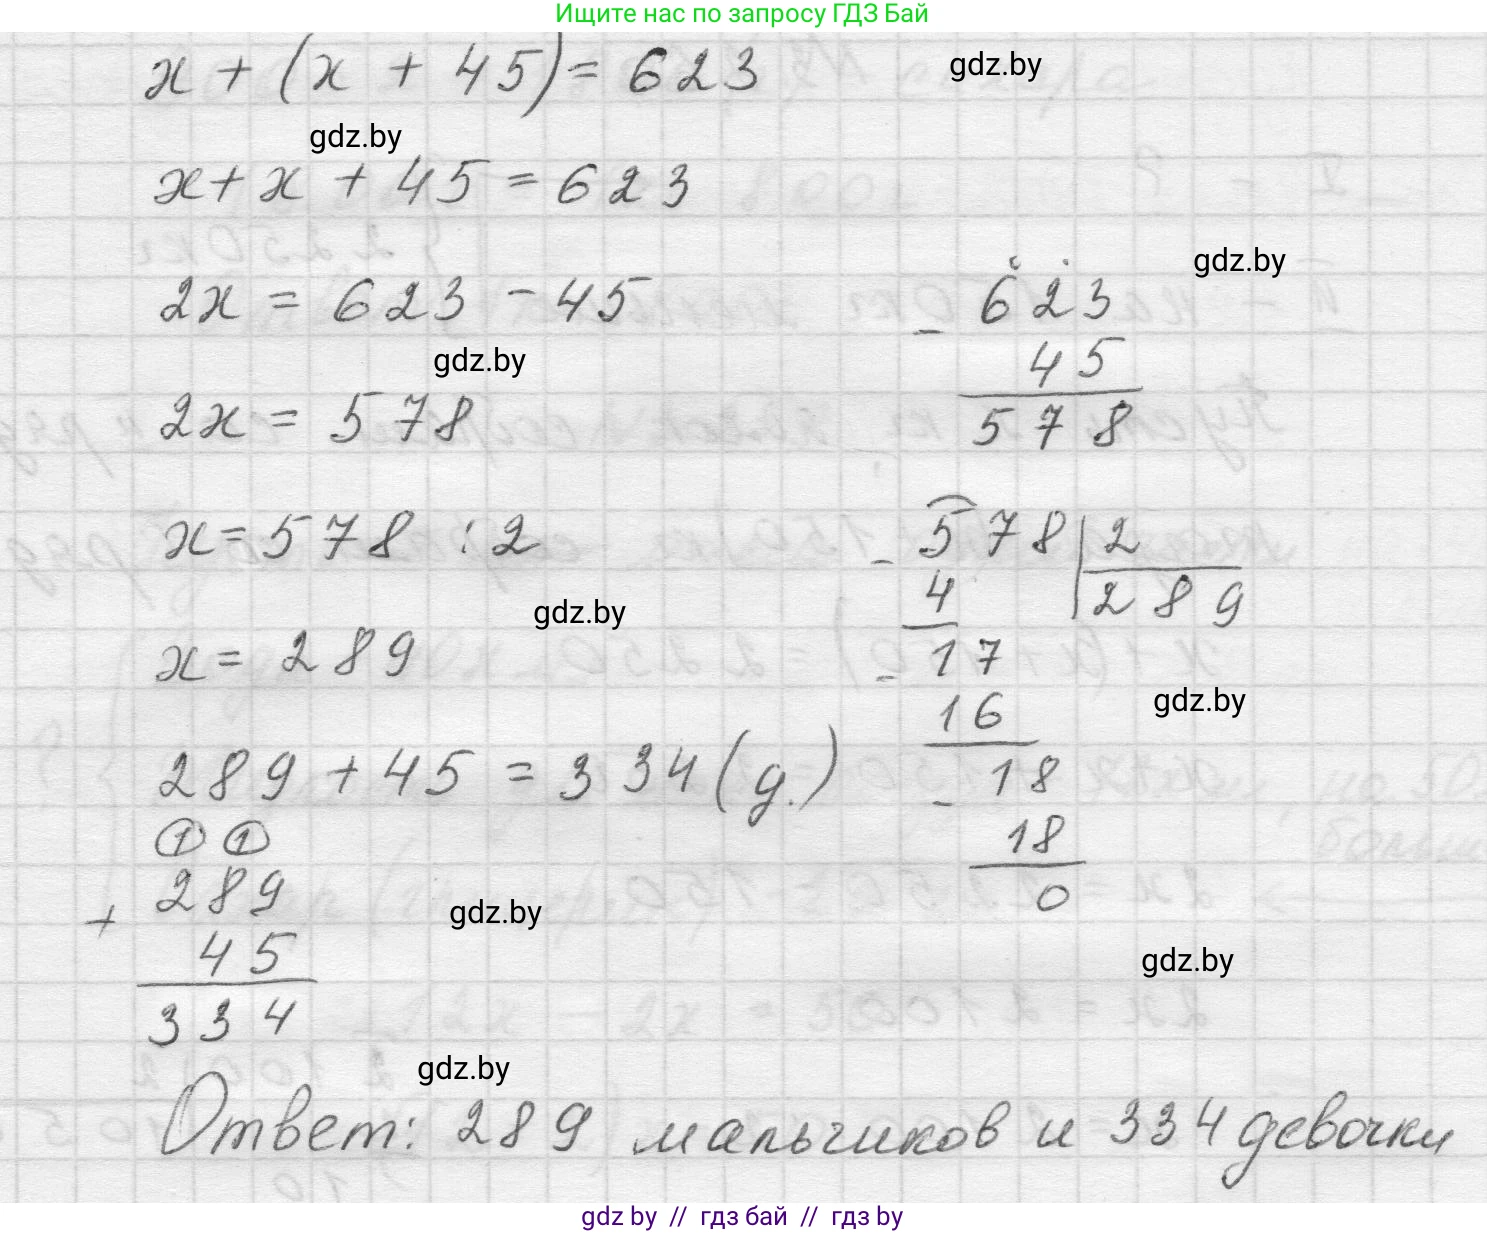 Ищите нас по запросу ГДЗ Бай
x + (x + 45) = 623
gdz.by
gdz.by
x + x + 45 = 623
gdz.by
2x = 623 - 45
- 623
45
578
gdz.by
2x = 578
x = 578 : 2
- 578 | 2
289
4
- 17
16
- 18
18
0
gdz.by
x = 289
gdz.by
289 + 45 = 334 (д.)
1 1
289
+ 45
334
gdz.by
gdz.by
gdz.by
Ответ: 289 мальчиков и 334 девочки
gdz by // гдз бай // гдз by